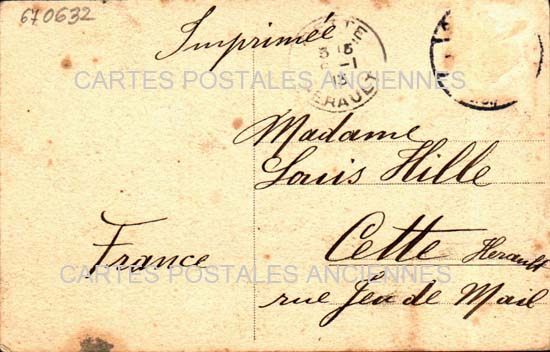 670632
Imprimée
CETTE
HERAULT
CARTES POSTALES ANCIENNES
Madame
Louis Hille
France
Cette Herault
CARTES POSTALES ANCIENNES
rue Jeu de Mail